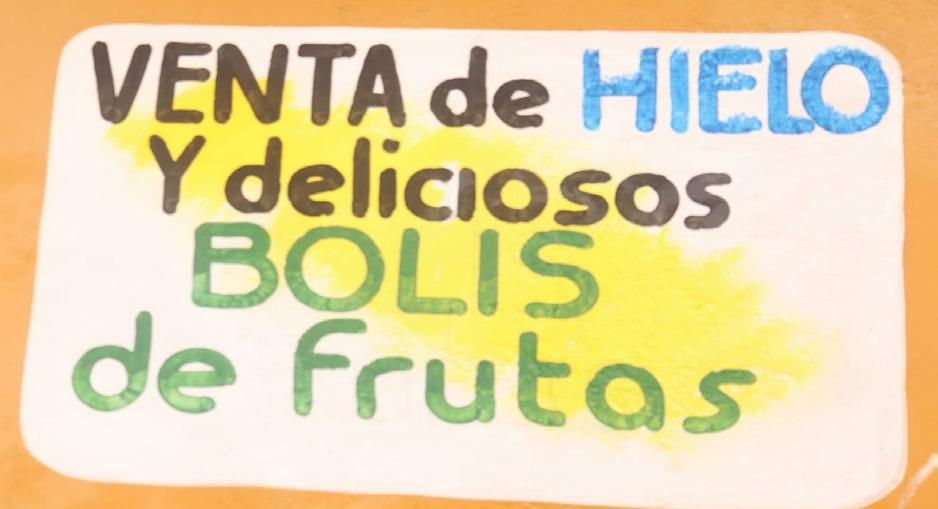 VENTA de HIELO
Y deliciosos
BOLIS
de frutas